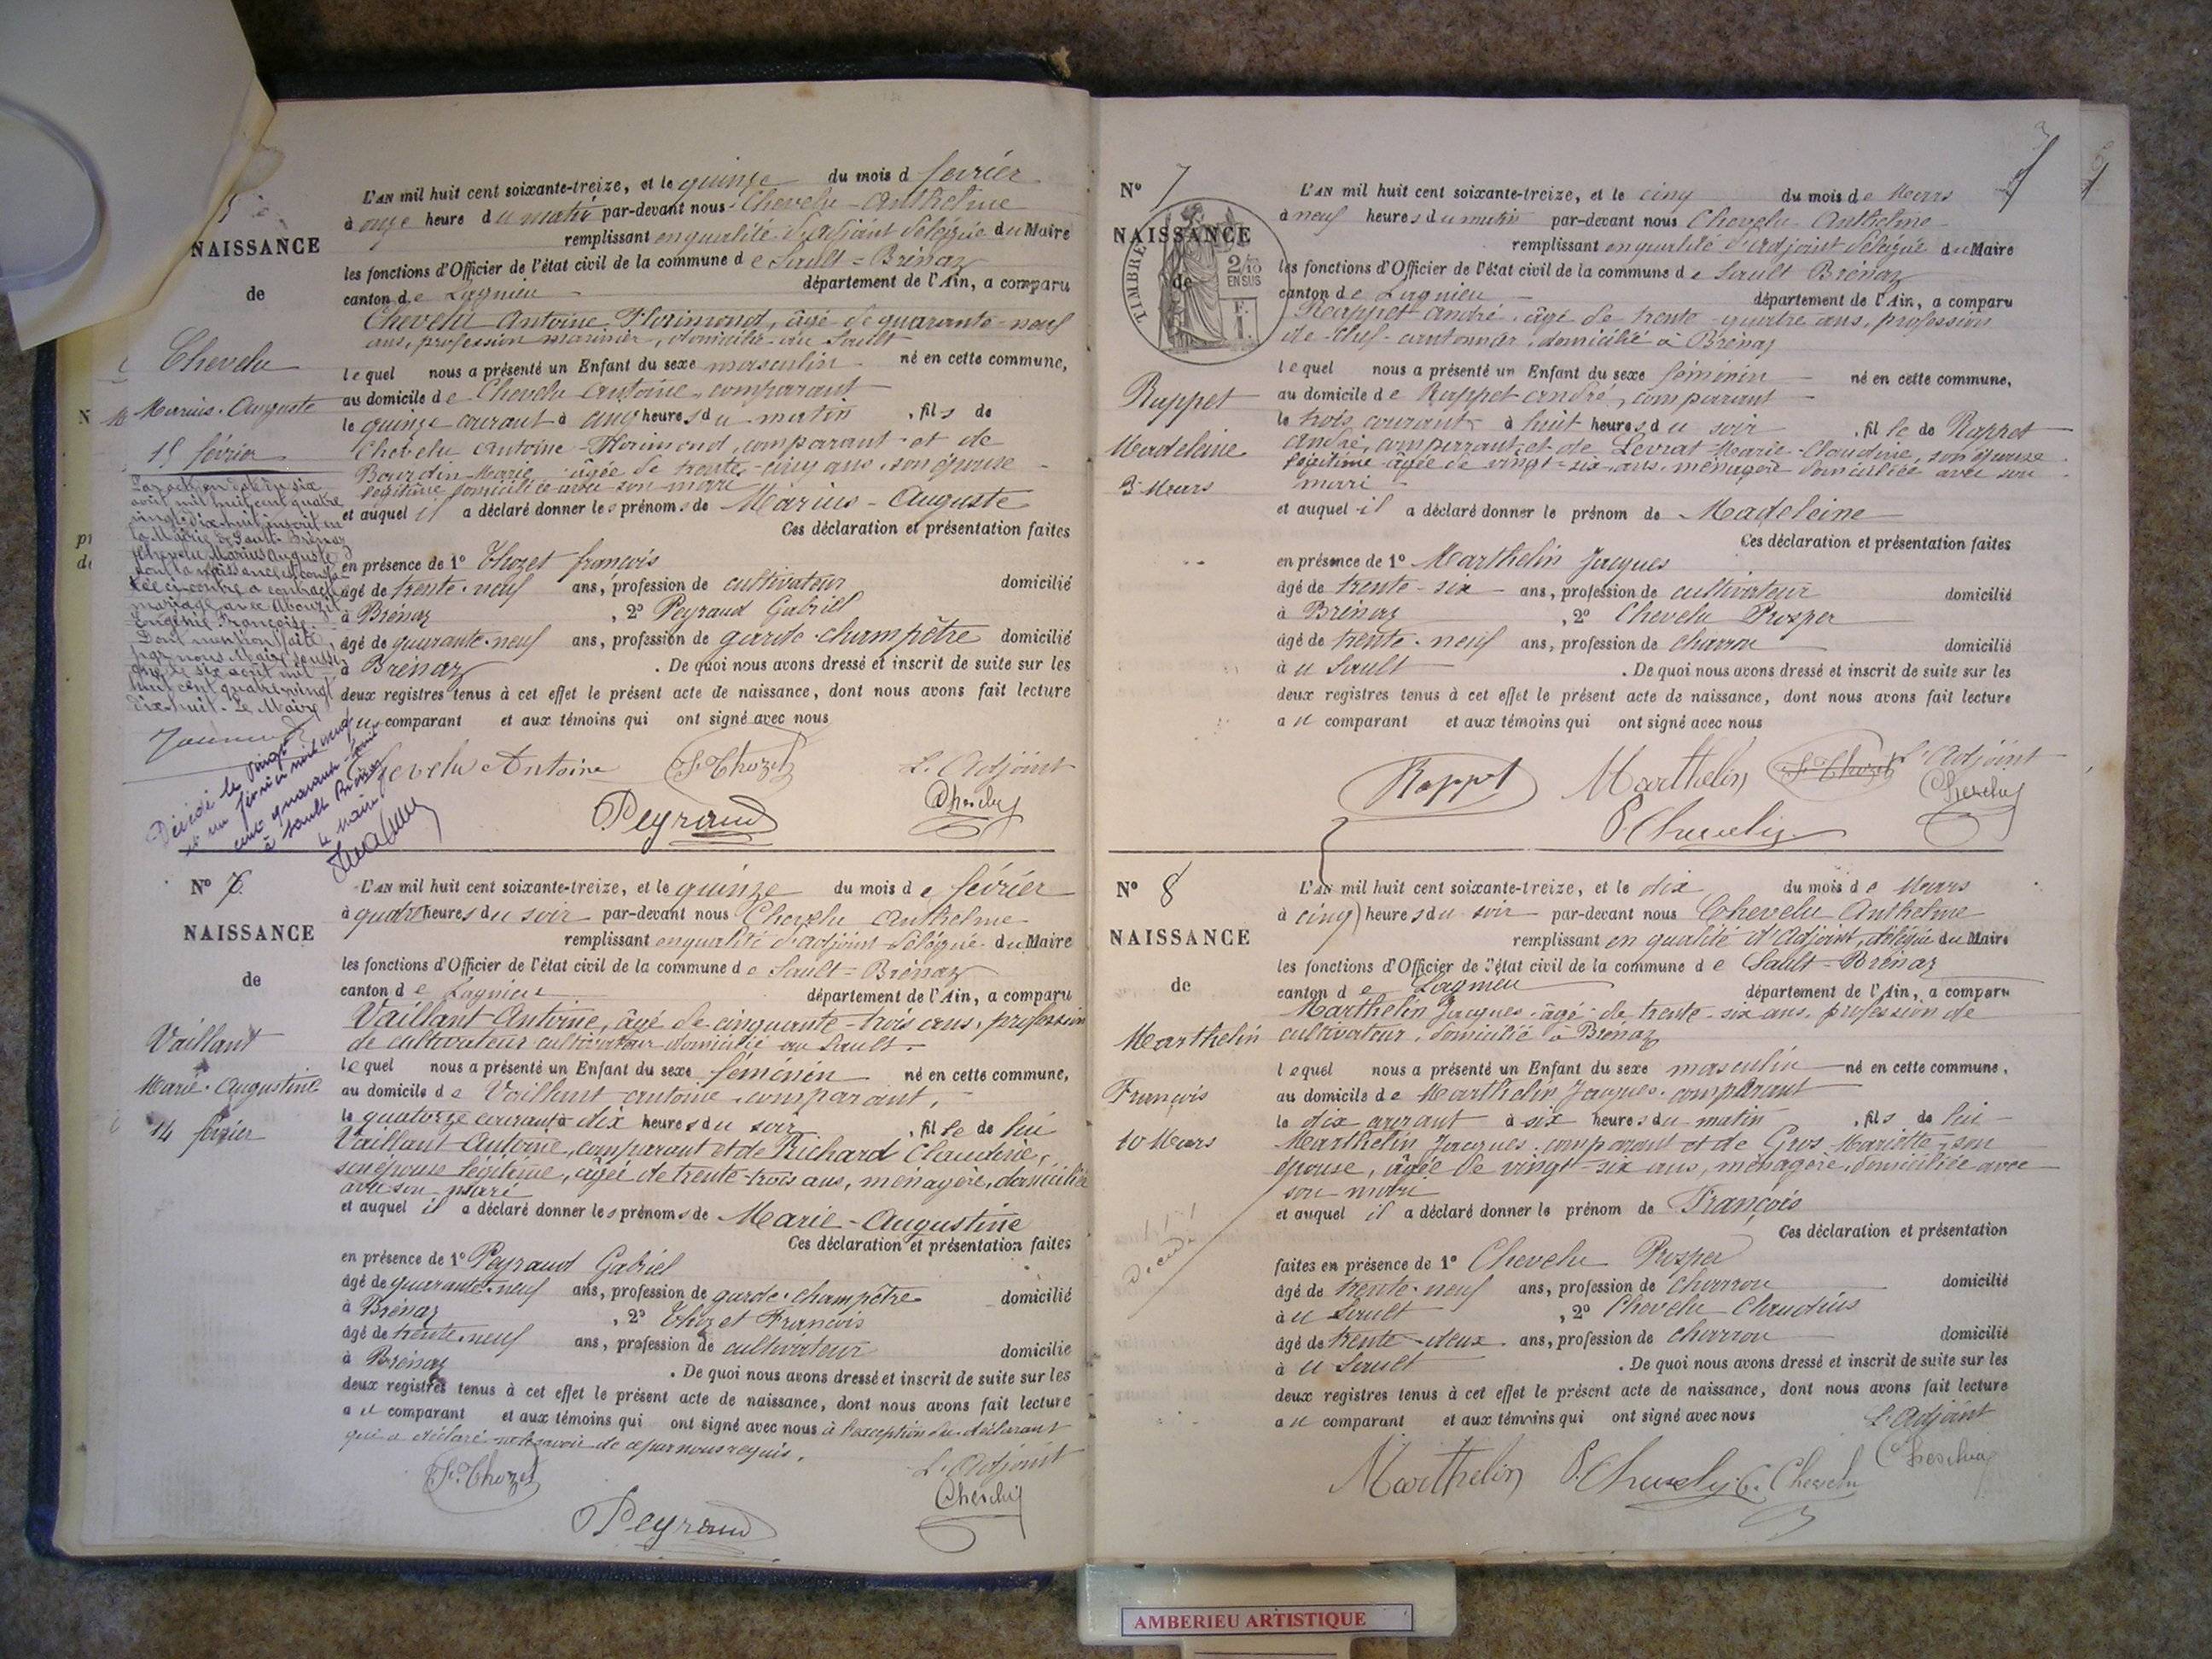 NAISSANCE
de
Chevelu
Marius-Auguste
15 février
L'AN mil huit cent soixante-treize, et le quinze du mois d février
à onze heure du matin par-devant nous Chevelu-Anthelme
remplissant en qualité d'adjoint délégué du Maire
les fonctions d'Officier de l'état civil de la commune de Sault=Brénaz
canton de Lagnieu département de l'Ain, a comparu
Chevelu Antoine Florimond, âgé de quarante-neuf
ans, profession marinier, domicilié au Sault
lequel nous a présenté un Enfant du sexe masculin né en cette commune,
au domicile de Chevelu Antoine, comparant
le quinze courant à cinq heures du matin, fils de
Chevelu Antoine-Florimond, comparant et de
Bourdin-Marie âgée de trente-cinq ans, son épouse
légitime domiciliée avec son mari
et auquel il a déclaré donner les prénoms de Marius-Auguste
Ces déclaration et présentation faites
en présence de 1º Thozet françois
âgé de trente-neuf ans, profession de cultivateur domicilié
à Brénaz, 2º Peyraud Gabriel
âgé de quarante-neuf ans, profession de garde-champêtre domicilié
à Brénaz. De quoi nous avons dressé et inscrit de suite sur les
deux registres tenus à cet effet le présent acte de naissance, dont nous avons fait lecture
au comparant et aux témoins qui ont signé avec nous
Par acte en date du six
août mil huit cent quatre
vingt dix-huit inscrit en
la Mairie de Sault-Brénaz
Chevelu Marius Auguste
dont la naissance est consta-
tée ci-contre a contracté
mariage avec
Eugénie Françoise.
Dont mention faite
par nous Maire soussi-
gné le six août mil
huit cent quatre vingt
dix-huit. Le Maire
Décédé le vingt
et un février mil neuf
cent quarante
à Sault Brénaz
le maire
Chevelu Antoine Fs Thozet L'Adjoint
Peyraud Chevelu
Nº 6
NAISSANCE
de
Vaillant
Marie-Augustine
14 février
L'AN mil huit cent soixante-treize, et le quinze du mois de février
à quatre heures du soir par-devant nous Chevelu Anthelme
remplissant en qualité d'adjoint délégué du Maire
les fonctions d'Officier de l'état civil de la commune de Sault=Brénaz
canton de Lagnieu département de l'Ain, a comparu
Vaillant Antoine, âgé de cinquante-trois ans, profession
de cultivateur cultivateur domicilié au Sault.
lequel nous a présenté un Enfant du sexe féminin né en cette commune,
au domicile de Vaillant Antoine, comparant,
le quatorze courant à dix heures du soir, fille de lui
Vaillant Antoine, comparant et de Richard Claudine,
son épouse légitime, âgée de trente-trois ans, ménagère, domiciliée
avec son mari
et auquel il a déclaré donner les prénoms de Marie-Augustine
Ces déclaration et présentation faites
en présence de 1º Peyraud Gabriel
âgé de quarante-neuf ans, profession de garde-champêtre domicilié
à Brénaz, 2º Thozet François
âgé de trente-neuf ans, profession de cultivateur domicilié
à Brénaz. De quoi nous avons dressé et inscrit de suite sur les
deux registres tenus à cet effet le présent acte de naissance, dont nous avons fait lecture
au comparant et aux témoins qui ont signé avec nous à l'exception du déclarant
qui a déclaré ne le savoir de ce par nous requis.
Fs Thozet L'Adjoint
Peyraud Chevelu
Nº 7
NAISSANCE
de
TIMBRE
2/10
EN SUS
F.
1.
Rappet
Madeleine
3 Mars
L'AN mil huit cent soixante-treize, et le cinq du mois de Mars
à neuf heures du matin par-devant nous Chevelu Anthelme
remplissant en qualité d'adjoint délégué du Maire
les fonctions d'Officier de l'état civil de la commune de Sault Brénaz
canton de Lagnieu département de l'Ain, a comparu
Rappet André, âgé de trente-quatre ans, profession
de chef-cantonnier, domicilié à Brénaz
lequel nous a présenté un Enfant du sexe féminin né en cette commune,
au domicile de Rappet André, comparant
le trois courant à huit heures du soir, fille de Rappet
André, comparant et de Levrat Marie-Claudine, son épouse
légitime âgée de vingt-six ans, ménagère domiciliée avec son
mari
et auquel il a déclaré donner le prénom de Madeleine
Ces déclaration et présentation faites
en présence de 1º Marthelin Jacques
âgé de trente-six ans, profession de cultivateur domicilié
à Brénaz, 2º Chevelu Prosper
âgé de trente-neuf ans, profession de charron domicilié
au Sault. De quoi nous avons dressé et inscrit de suite sur les
deux registres tenus à cet effet le présent acte de naissance, dont nous avons fait lecture
au comparant et aux témoins qui ont signé avec nous
Rappet Marthelin Fs Thozet L'Adjoint
P. Chevelu Chevelu
Nº 8
NAISSANCE
de
Marthelin
François
10 Mars
L'AN mil huit cent soixante-treize, et le dix du mois de Mars
à cinq heures du soir par-devant nous Chevelu Anthelme
remplissant en qualité d'Adjoint, délégué du Maire
les fonctions d'Officier de l'état civil de la commune de Sault-Brénaz
canton de Lagnieu département de l'Ain, a comparu
Marthelin Jacques, âgé de trente-six ans, profession de
cultivateur, domicilié à Brénaz
lequel nous a présenté un Enfant du sexe masculin né en cette commune,
au domicile de Marthelin Jacques, comparant
le dix courant à six heures du matin, fils de lui
Marthelin Jacques, comparant et de Gros Mariette, son
épouse, âgée de vingt-six ans, ménagère, domiciliée avec
son mari
et auquel il a déclaré donner le prénom de François
Ces déclaration et présentation
faites en présence de 1º Chevelu Prosper
âgé de trente-neuf ans, profession de charron domicilié
au Sault, 2º Chevelu Claudius
âgé de trente-deux ans, profession de charron domicilié
au Sault. De quoi nous avons dressé et inscrit de suite sur les
deux registres tenus à cet effet le présent acte de naissance, dont nous avons fait lecture
au comparant et aux témoins qui ont signé avec nous L'Adjoint
Marthelin P. Chevelu C. Chevelu Chevelu
AMBERIEU ARTISTIQUE